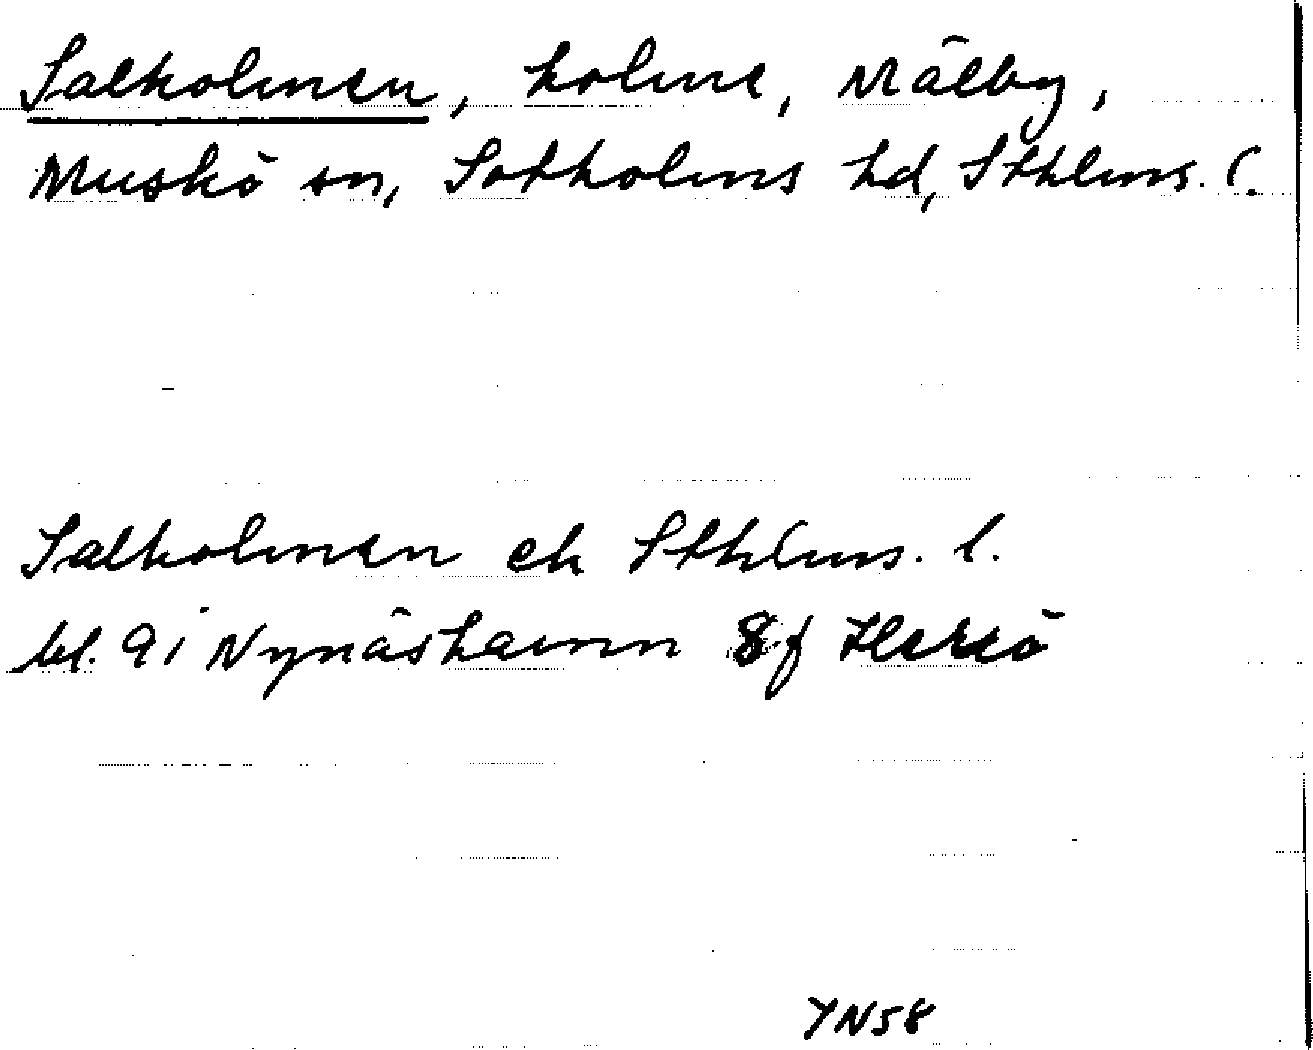 Salholmen, holme, Mälby,
Muskö sn, Sotholms hd, Sthlms. l.
Salholmen ek Sthlms. l.
bl. 9i Nynäshamn 8f Herrö
YN58